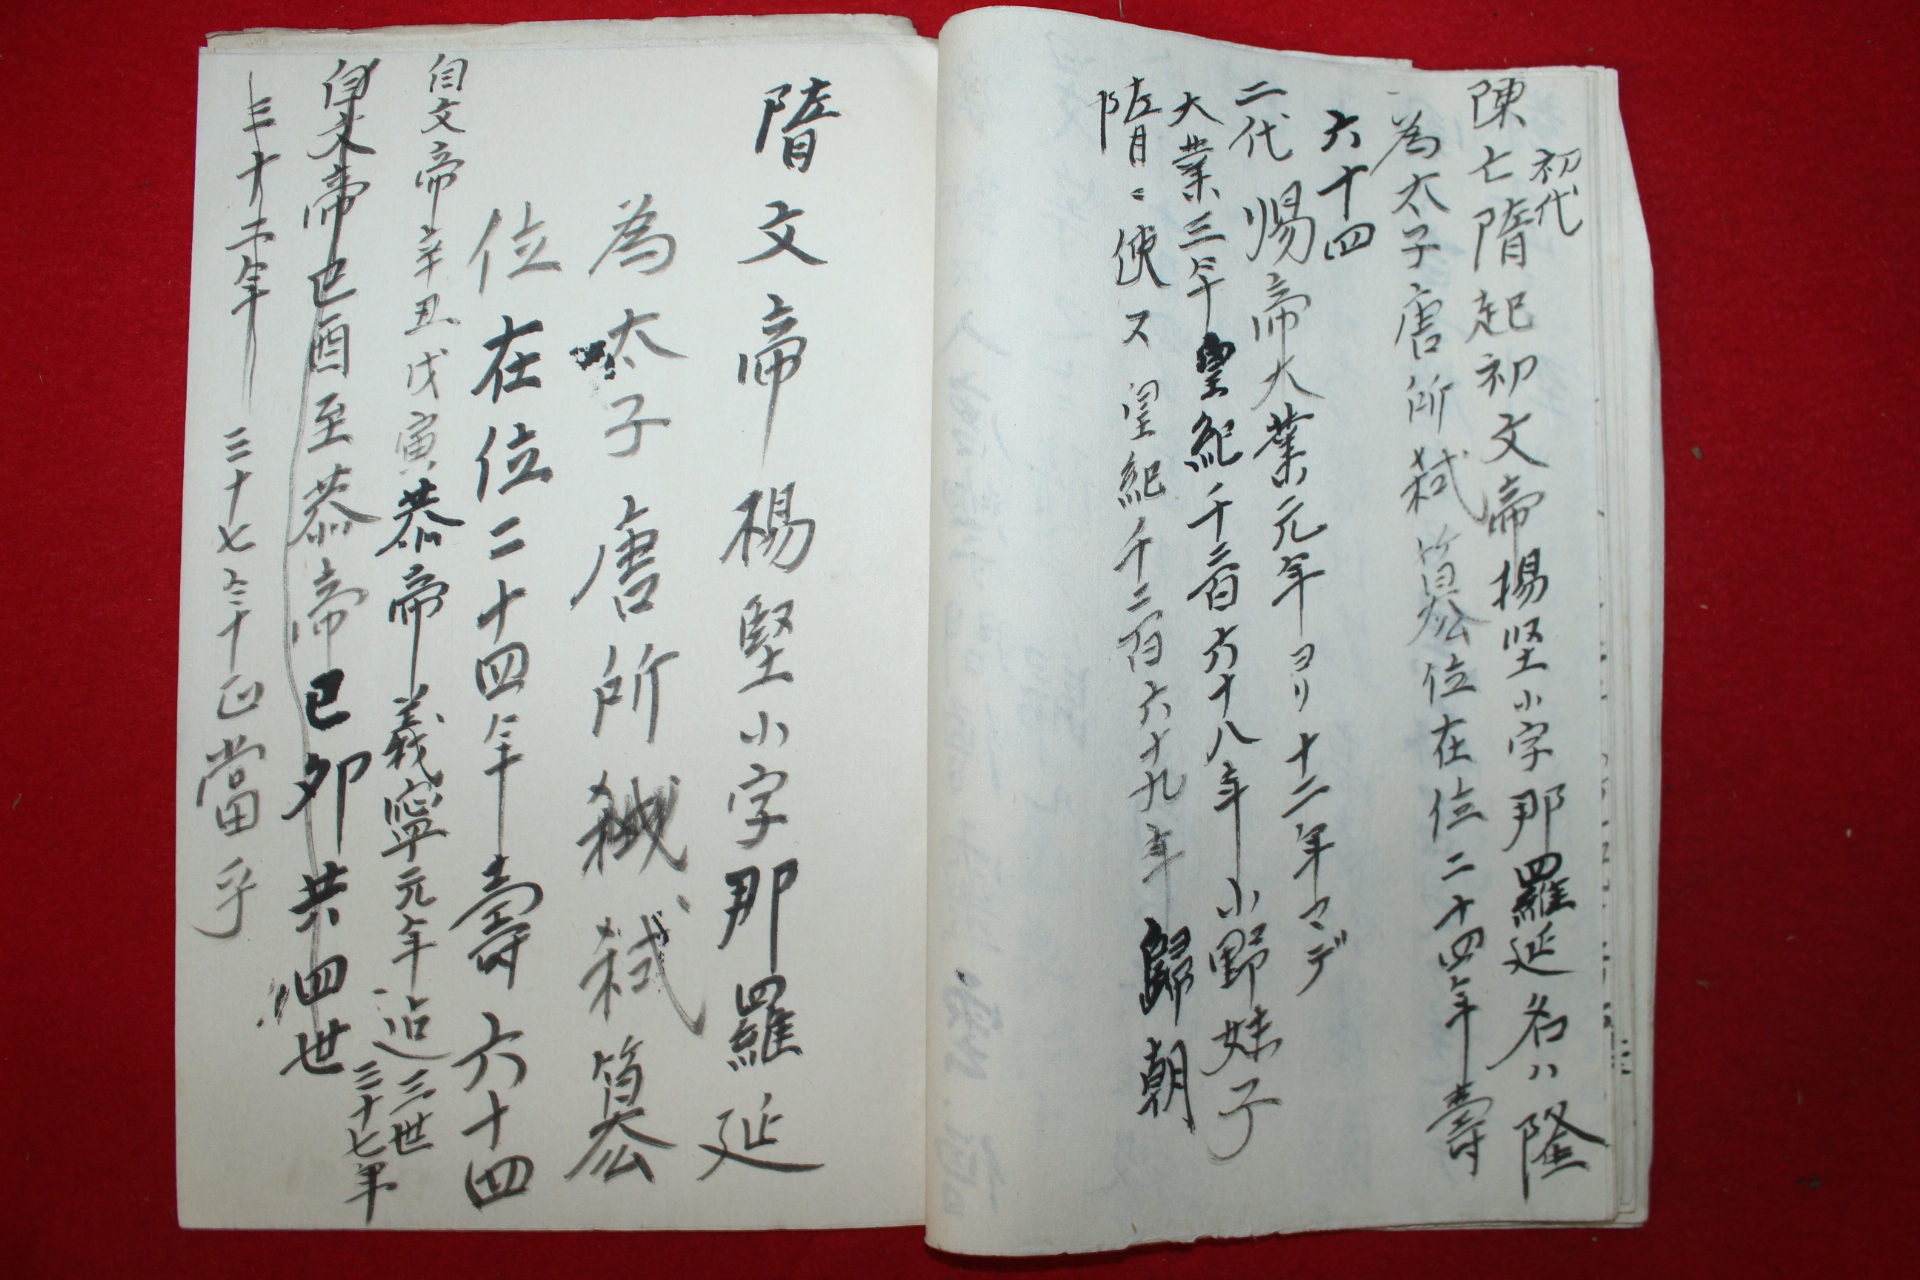 初代
陳亡隋起初文帝楊坚小字那羅延名ハ隆
為太子唐所弑簒位在位二十四年壽
六十四
二代 煬帝大業元年ヨリ十二年マデ
大業三年皇紀千二百六十八年小野妹子
隋ニ使ス 皇紀千二百六十九年歸朝
隋文帝楊堅小字那羅延
為太子唐所弑簒
位在位二十四年壽六十四
自文帝辛丑戊寅恭帝義寧元年迄三世
三十七年
自文帝己酉至恭帝己卯共四世
三十二年 三十七ニ正當乎